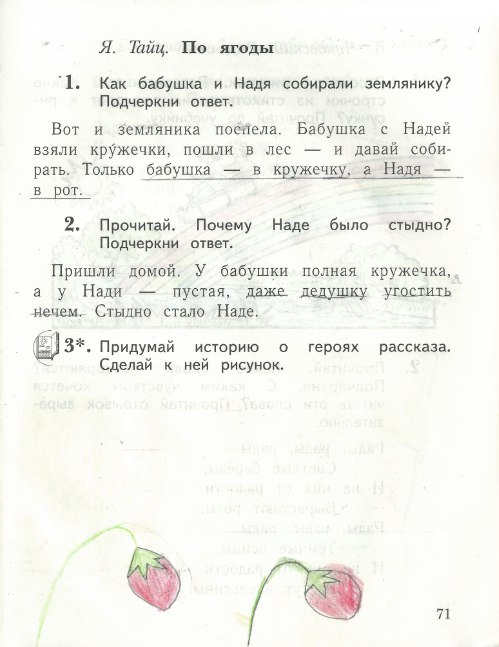 Я. Тайц. По ягоды
1. Как бабушка и Надя собирали землянику?
Подчеркни ответ.
Вот и земляника поспела. Бабушка с Надей
взяли кру́жечки, пошли в лес — и давай соби-
рать. Только бабушка — в кружечку, а Надя —
в рот.
2. Прочитай. Почему Наде было стыдно?
Подчеркни ответ.
Пришли домой. У бабушки полная кружечка,
а у Нади — пустая, даже дедушку угостить
нечем. Стыдно стало Наде.
3*. Придумай историю о героях рассказа.
Сделай к ней рисунок.
71